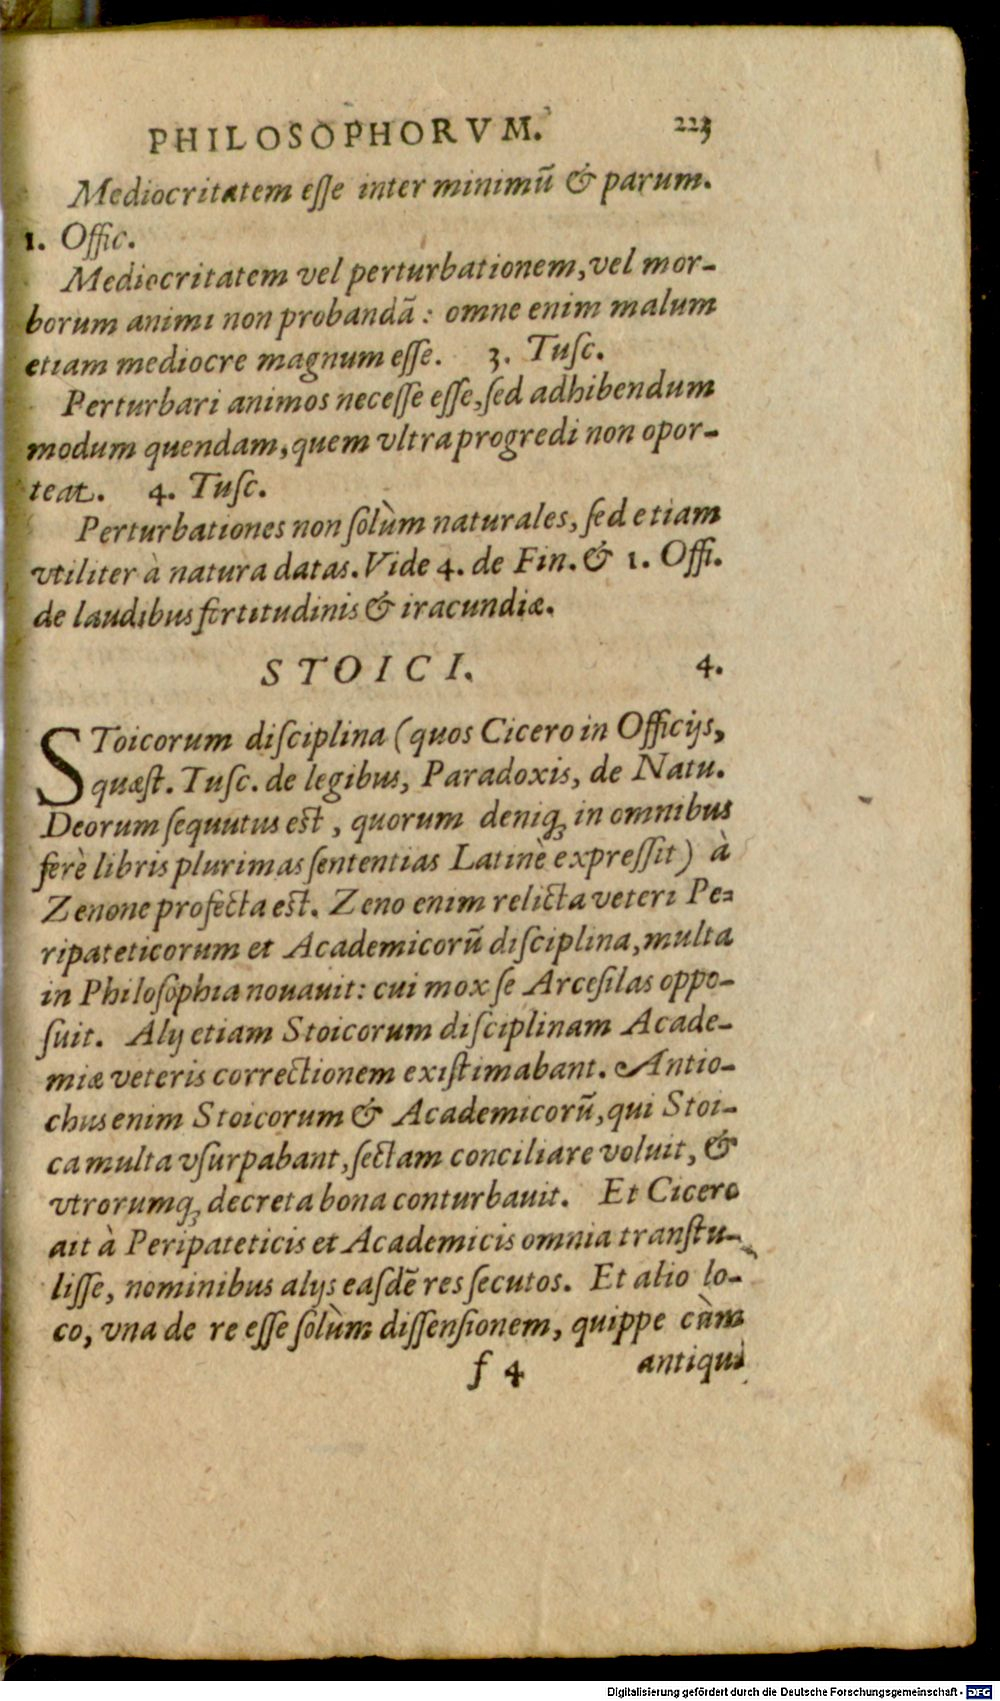 PHILOSOPHORVM. 223
Mediocritatem eſſe inter minimū & parum.
1. Offic.
Mediocritatem vel perturbationem, vel mor-
borum animi non probandā : omne enim malum
etiam mediocre magnum eſſe. 3. Tuſc.
Perturbari animos neceſſe eſſe, ſed adhibendum
modum quendam, quem vltra progredi non opor-
teat. 4. Tuſc.
Perturbationes non ſolùm naturales, ſed etiam
vtiliter à natura datas. Vide 4. de Fin. & 1. Offi.
de laudibus fortitudinis & iracundiæ.
STOICI. 4.
SToicorum diſciplina (quos Cicero in Officijs,
quæſt. Tuſc. de legibus, Paradoxis, de Natu.
Deorum ſequutus eſt, quorum deniq; in omnibus
ferè libris plurimas ſententias Latinè expreſſit) à
Zenone profecta eſt. Zeno enim relicta veteri Pe-
ripateticorum et Academicorū diſciplina, multa
in Philoſophia nouauit: cui mox ſe Arceſilas oppo-
ſuit. Alij etiam Stoicorum diſciplinam Acade-
miæ veteris correctionem exiſtimabant. Antio-
chus enim Stoicorum & Academicorū, qui Stoi-
ca multa vſurpabant, ſectam conciliare voluit, &
vtrorumq; decreta bona conturbauit. Et Cicero
ait à Peripateticis et Academicis omnia tranſtu-
liſſe, nominibus alijs eaſdē res ſecutos. Et alio lo-
co, vna de re eſſe ſolùm diſſenſionem, quippe cùm
f 4 antiqui
Digitalisierung gefördert durch die Deutsche Forschungsgemeinschaft - DFG